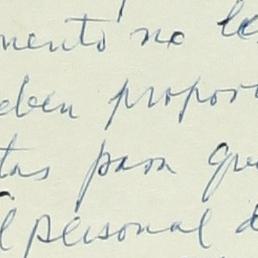 mento no le
deben propor
tas para que
l personal d